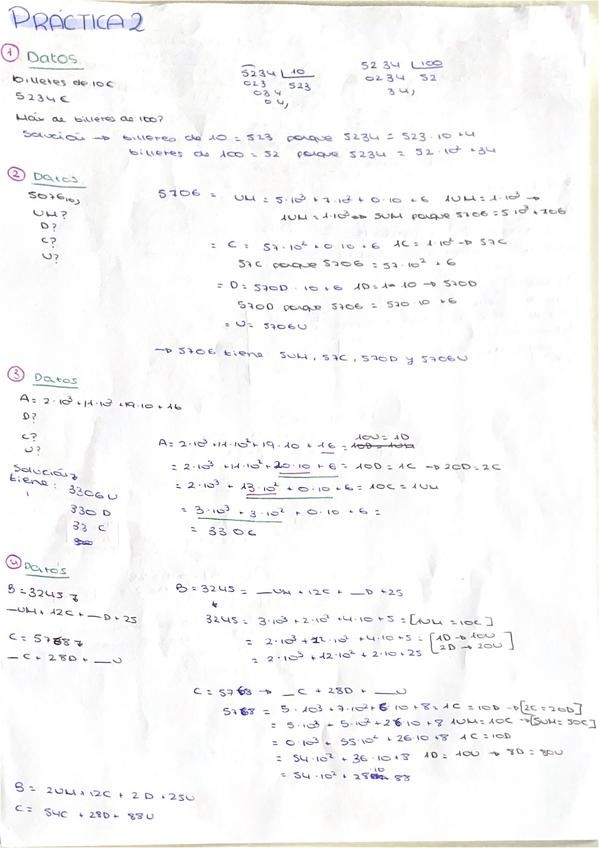 PRÁCTICA 2
1 Datos
billetes de 10€
5234€
Máx de billetes de 100?
5234 10
023 523
034
04,
5234 100
0234 52
34,
Solución → billetes de 10 = 523 porque 5234 = 523·10+4
billetes de 100 = 52 porque 5234 = 52·10²+34
2 Datos
UM?
D?
C?
U?
5706 = UM = 5·10³+7·10²+0·10+6 1UM=1·10³→
1UM=1·10³→ 5UM porque 5706=5·10³+706
= C = 57·10²+0·10+6 1C=1·10²→ 57C
57C porque 5706=57·10²+6
= D = 570D·10+6 1D=1·10 → 570D
570D porque 5706 = 570·10+6
= U = 5706U
→ 5706 tiene 5UM, 57C, 570D y 5706U
3 Datos
A=2·10³+11·10²+19·10+16
D?
C?
U?
Solución
tiene: 3306U
330D
33C
A=2·10³+11·10²+19·10+16= 10U=1D
=2·10³+11·10²+20·10+6=10D=1C →20D=2C
=2·10³+13·10²+0·10+6=10C=1UM
=3·10³+3·10²+0·10+6=
4 Datos
B=3245
_UM+12C+_D+25
_C+28D+_U
B=3245=_UM+12C+_D+25
3245=3·10³+2·10²+4·10+5=[1UM=10C]
=2·10³+12·10²+4·10+5=[1D→10U
2D→20U]
=2·10³+12·10²+2·10+25
→ _C+28D+_U
=5·10³+7·10²+6·10+8=1C=10D→[2C=20D]
=5·10³+5·10²+26·10+8 1UM=10C→[5UM=50C]
=0·10³+55·10²+26·10+8 1C=10D
=54·10²+36·10+8 1D=10U → 8D=80U
B=2UM+12C+2D+25U
C=54C+28D+88U